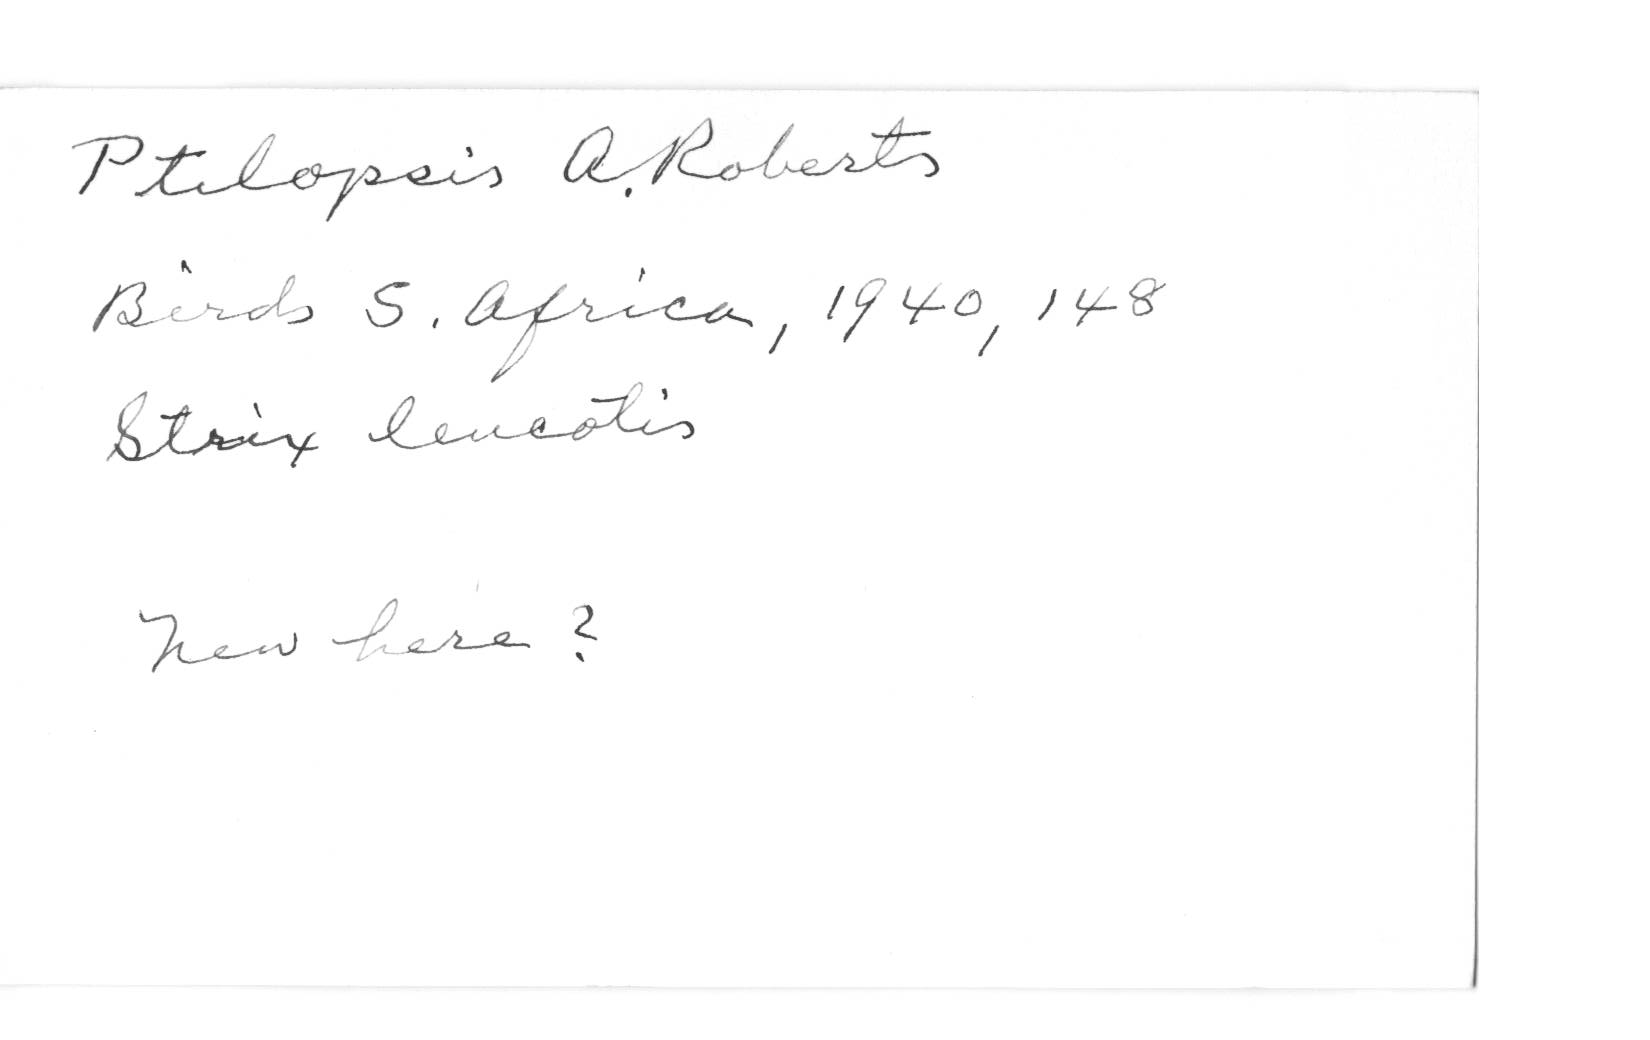 Ptilopsis A. Roberts
Birds S. Africa, 1940, 148
Strix leucotis
New here?